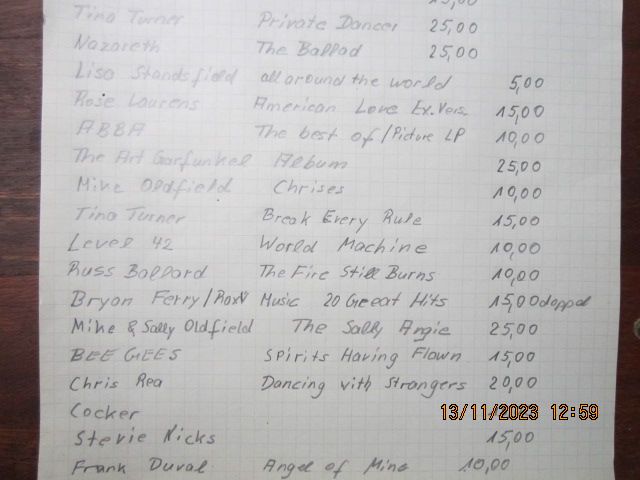 Tina Turner Private Dancer 25,00
Nazareth The Ballad 25,00
Lisa Standsfield all around the world 5,00
Rose Laurens American Love Ex. Vers. 15,00
ABBA The best of / Picture LP 10,00
The Art Garfunkel Album 25,00
Mike Oldfield Chrises 10,00
Tina Turner Break Every Rule 15,00
Level 42 World Machine 10,00
Russ Ballard The Fire Still Burns 10,00
Bryan Ferry / Roxy Music 20 Greeat Hits 15,00 doppel
Mike & Sally Oldfield The Sally Angie 25,00
BEE GEES Spirits Having Flown 15,00
Chris Rea Dancing with Strangers 20,00
Cocker
13/11/2023 12:59
Stevie Nicks 15,00
Frank Duval Angel of Mine 10,00